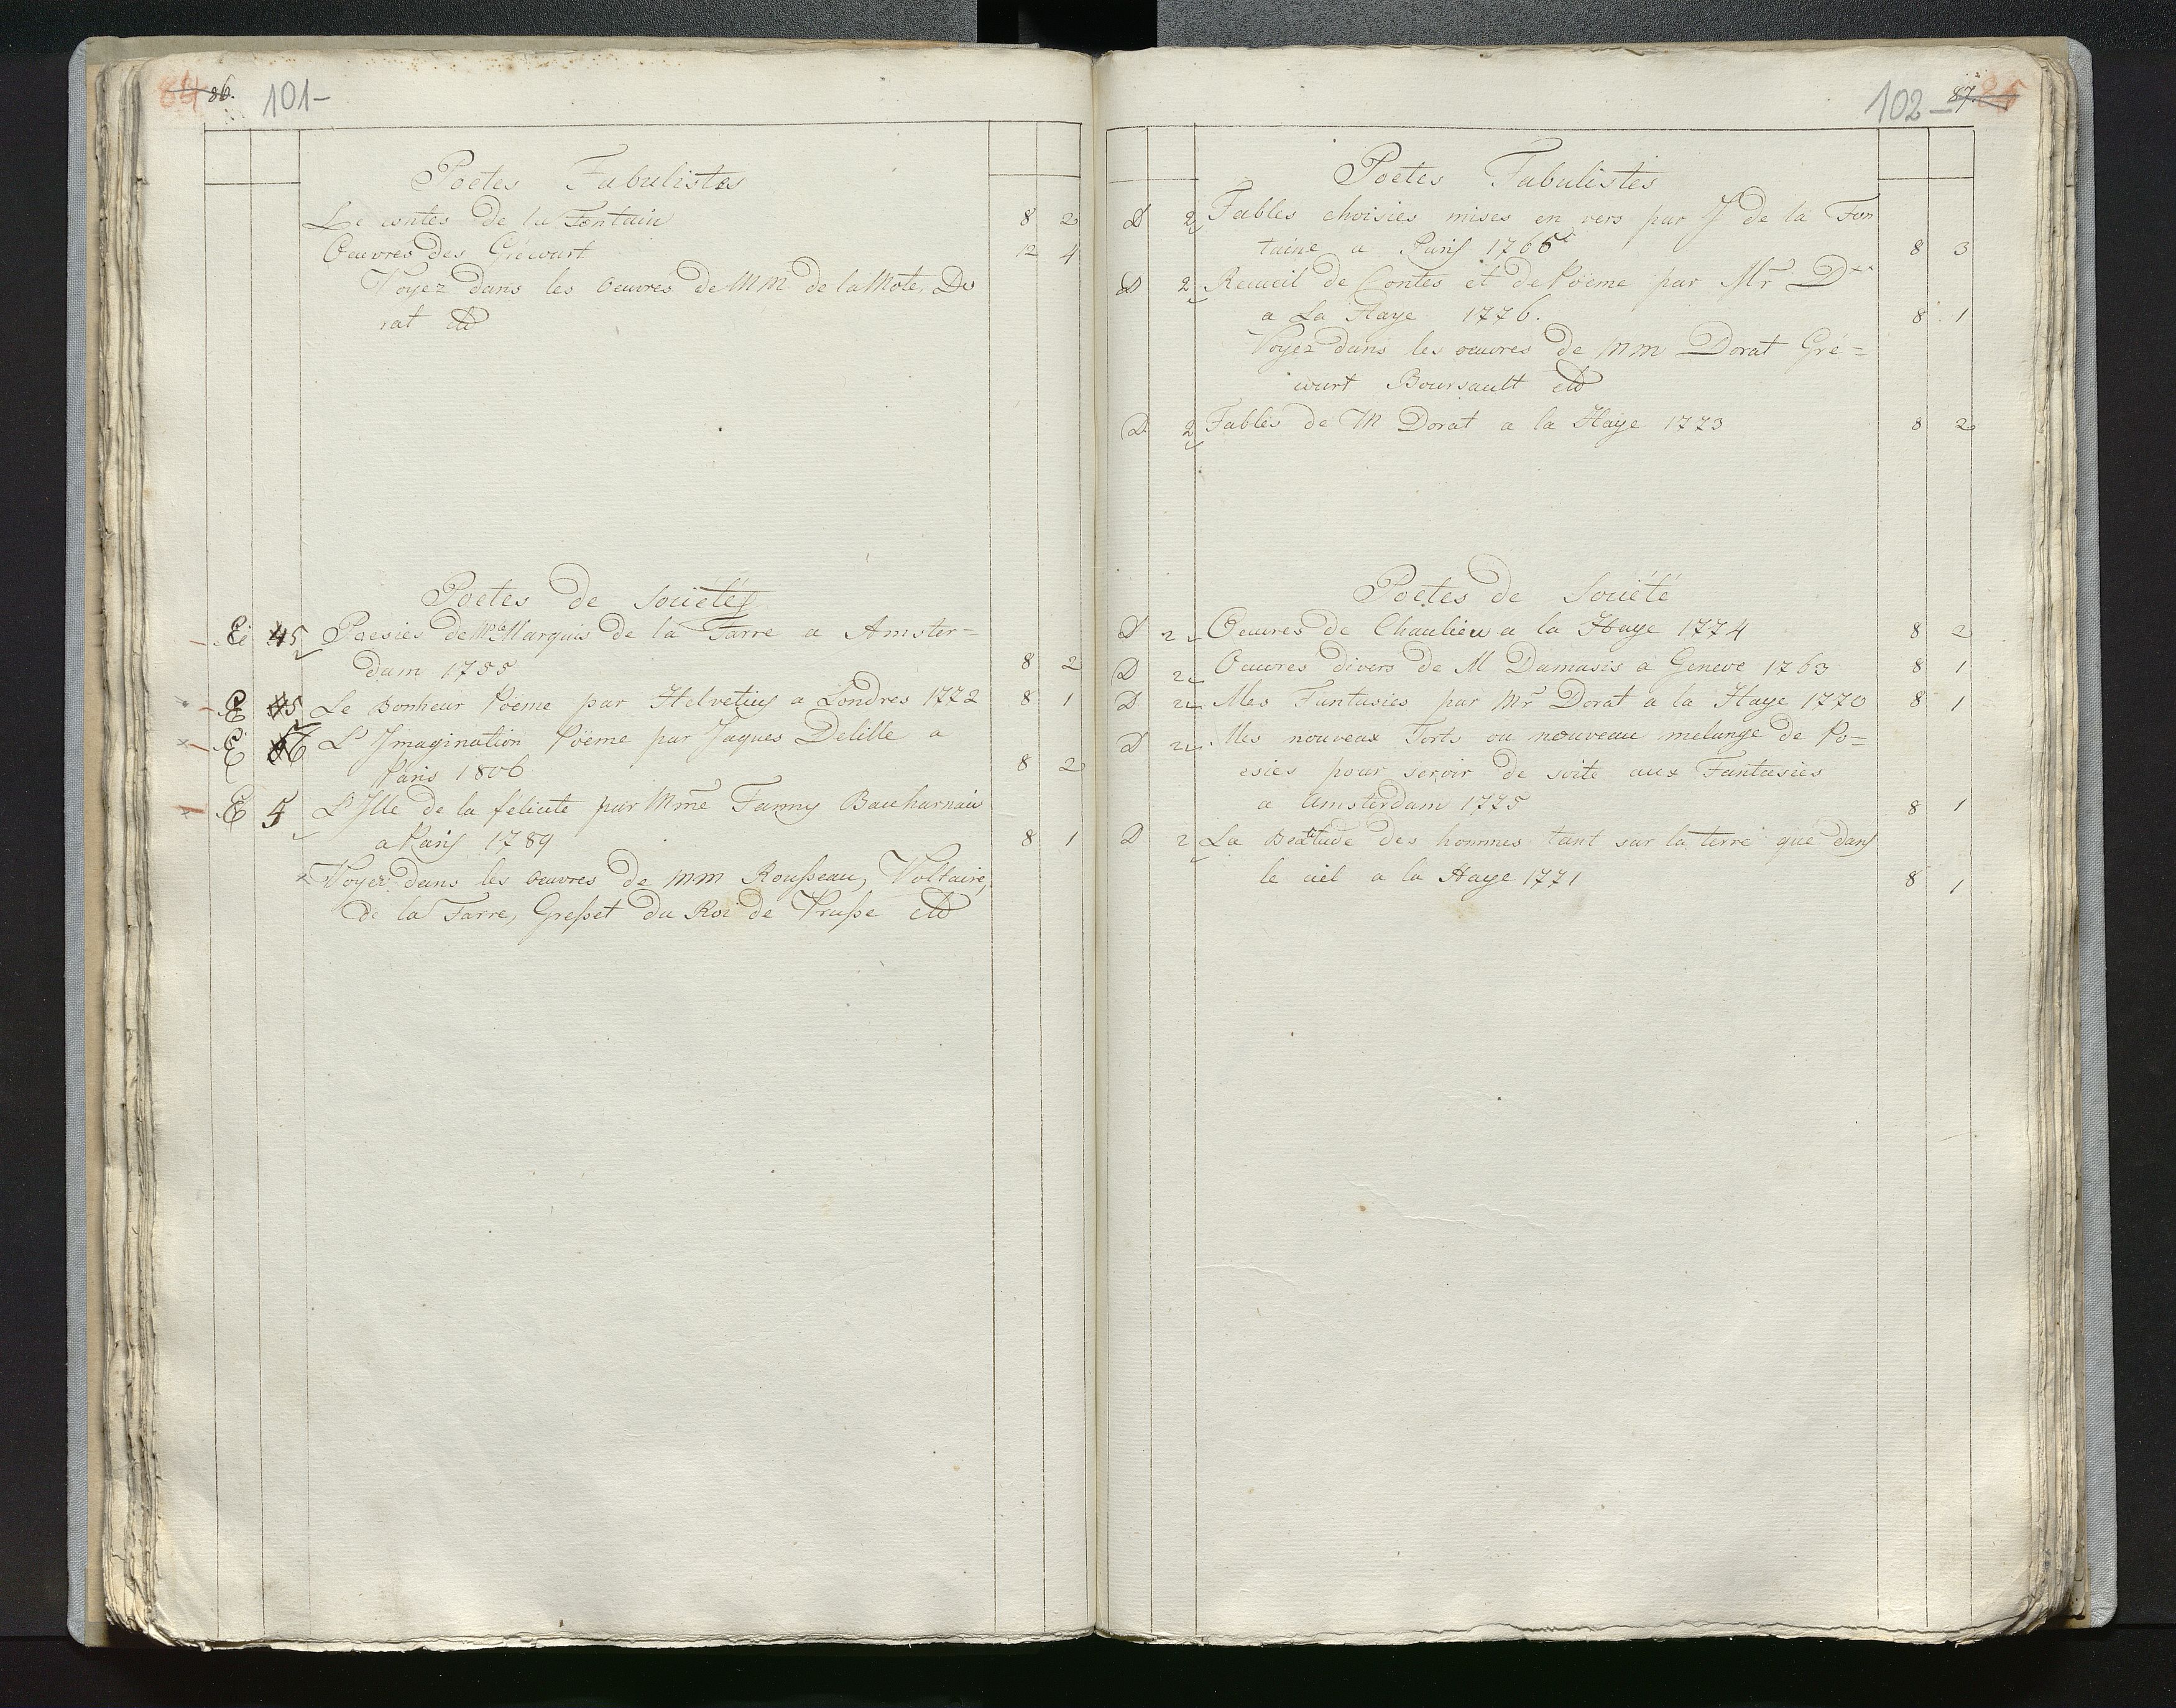 84 86. 101-
Poetes Fabulistes
Le contes de la Fontain 8 2
Oeuvres des Grécourt 12 4
Voyez dans les oeuvres de MM de la Mote, Do
rat etc
Poetes de société
E 45 Poesies de Mr le Marquis de la Farre a Amster=
dam 1755 8 2
E 45 Le Bonheur Poëme par Helvetius a Londres 1772 8 1
E 56 L'Imagination Poëme par Jaques Delille a
Paris 1806 8 2
E 5 L'Ille de la félicite par Mme Fanny Bauharnais
a Paris 1789 8 1
Voyez dans les oeuvres de MM Rousseau, Voltaire,
de la Farre, Gresset du Roi de Prusse etc
102- 87. 85
Poetes Fabulistes
D 2 Fables choisies mises en vers par J de la Fon
taine a Paris 1765 8 3
D 2 Recueil de Contes et de Poëme par Mr D**
a La Haye 1776. 8 1
Voyez dans les oeuvres de MM Dorat Gré=
court Boursault etc
D 2 Fables de M Dorat a la Haye 1773 8 2
Poetes de Société
D 2 Oeuvres de Chaulieu a la Haye 1774 8 2
D 2 Oeuvres divers de M Damasis a Geneve 1763 8 1
D 2 Mes Fantasies par Mr Dorat a la Haye 1770 8 1
D 2 Mes nouveax Torts ou nouveau melange de Po=
esies pour servir de svite aux Fantasies
a Amsterdam 1775 8 1
D 2 La Beatitude des hommes tant sur la terre que dans
le ciel a la Haye 1771 8 1